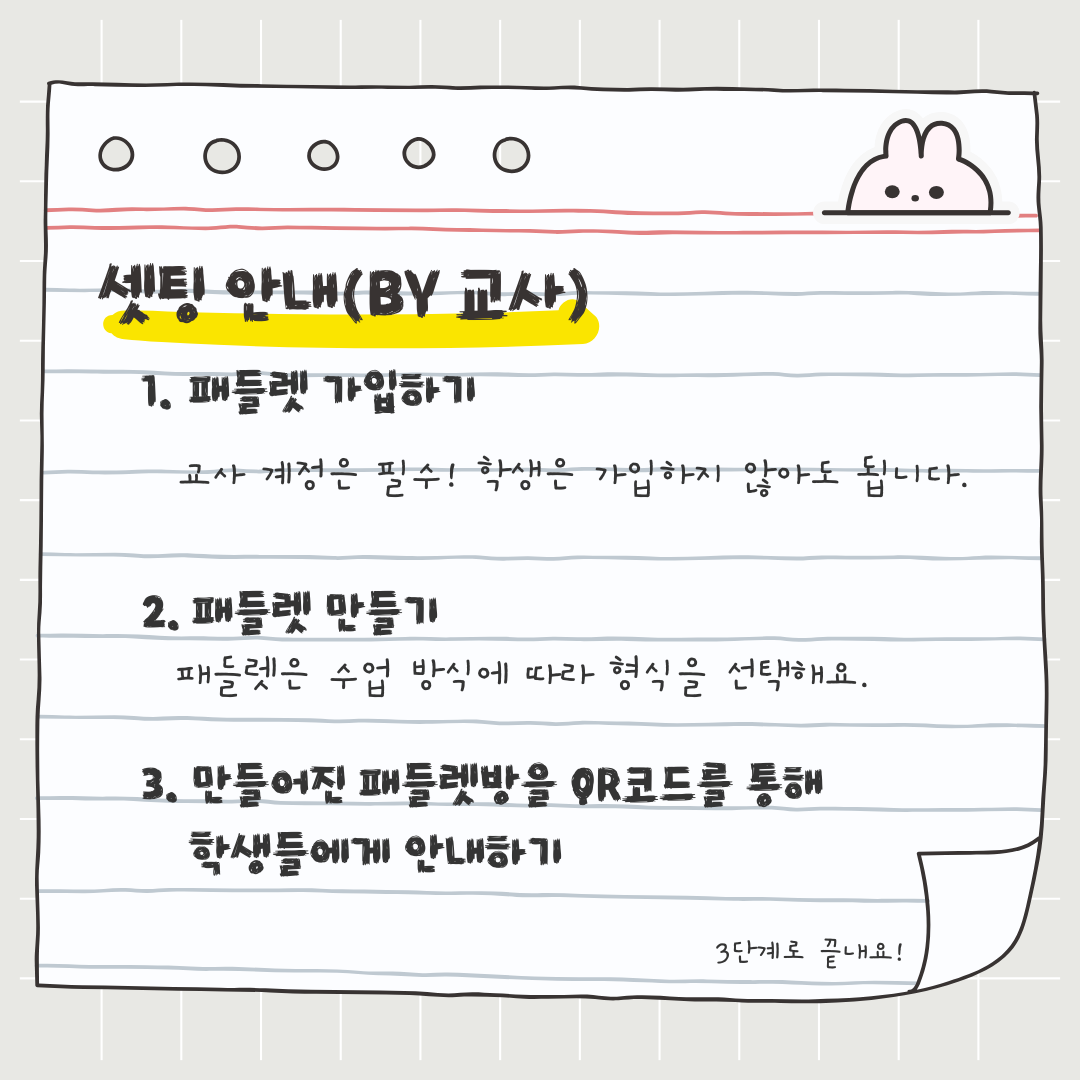 셋팅 안내(BY 교사)
1. 패들렛 가입하기
교사 계정은 필수! 학생은 가입하지 않아도 됩니다.
2. 패들렛 만들기
패들렛은 수업 방식에 따라 형식을 선택해요.
3. 만들어진 패들렛방을 QR코드를 통해
학생들에게 안내하기
3단계로 끝내요!